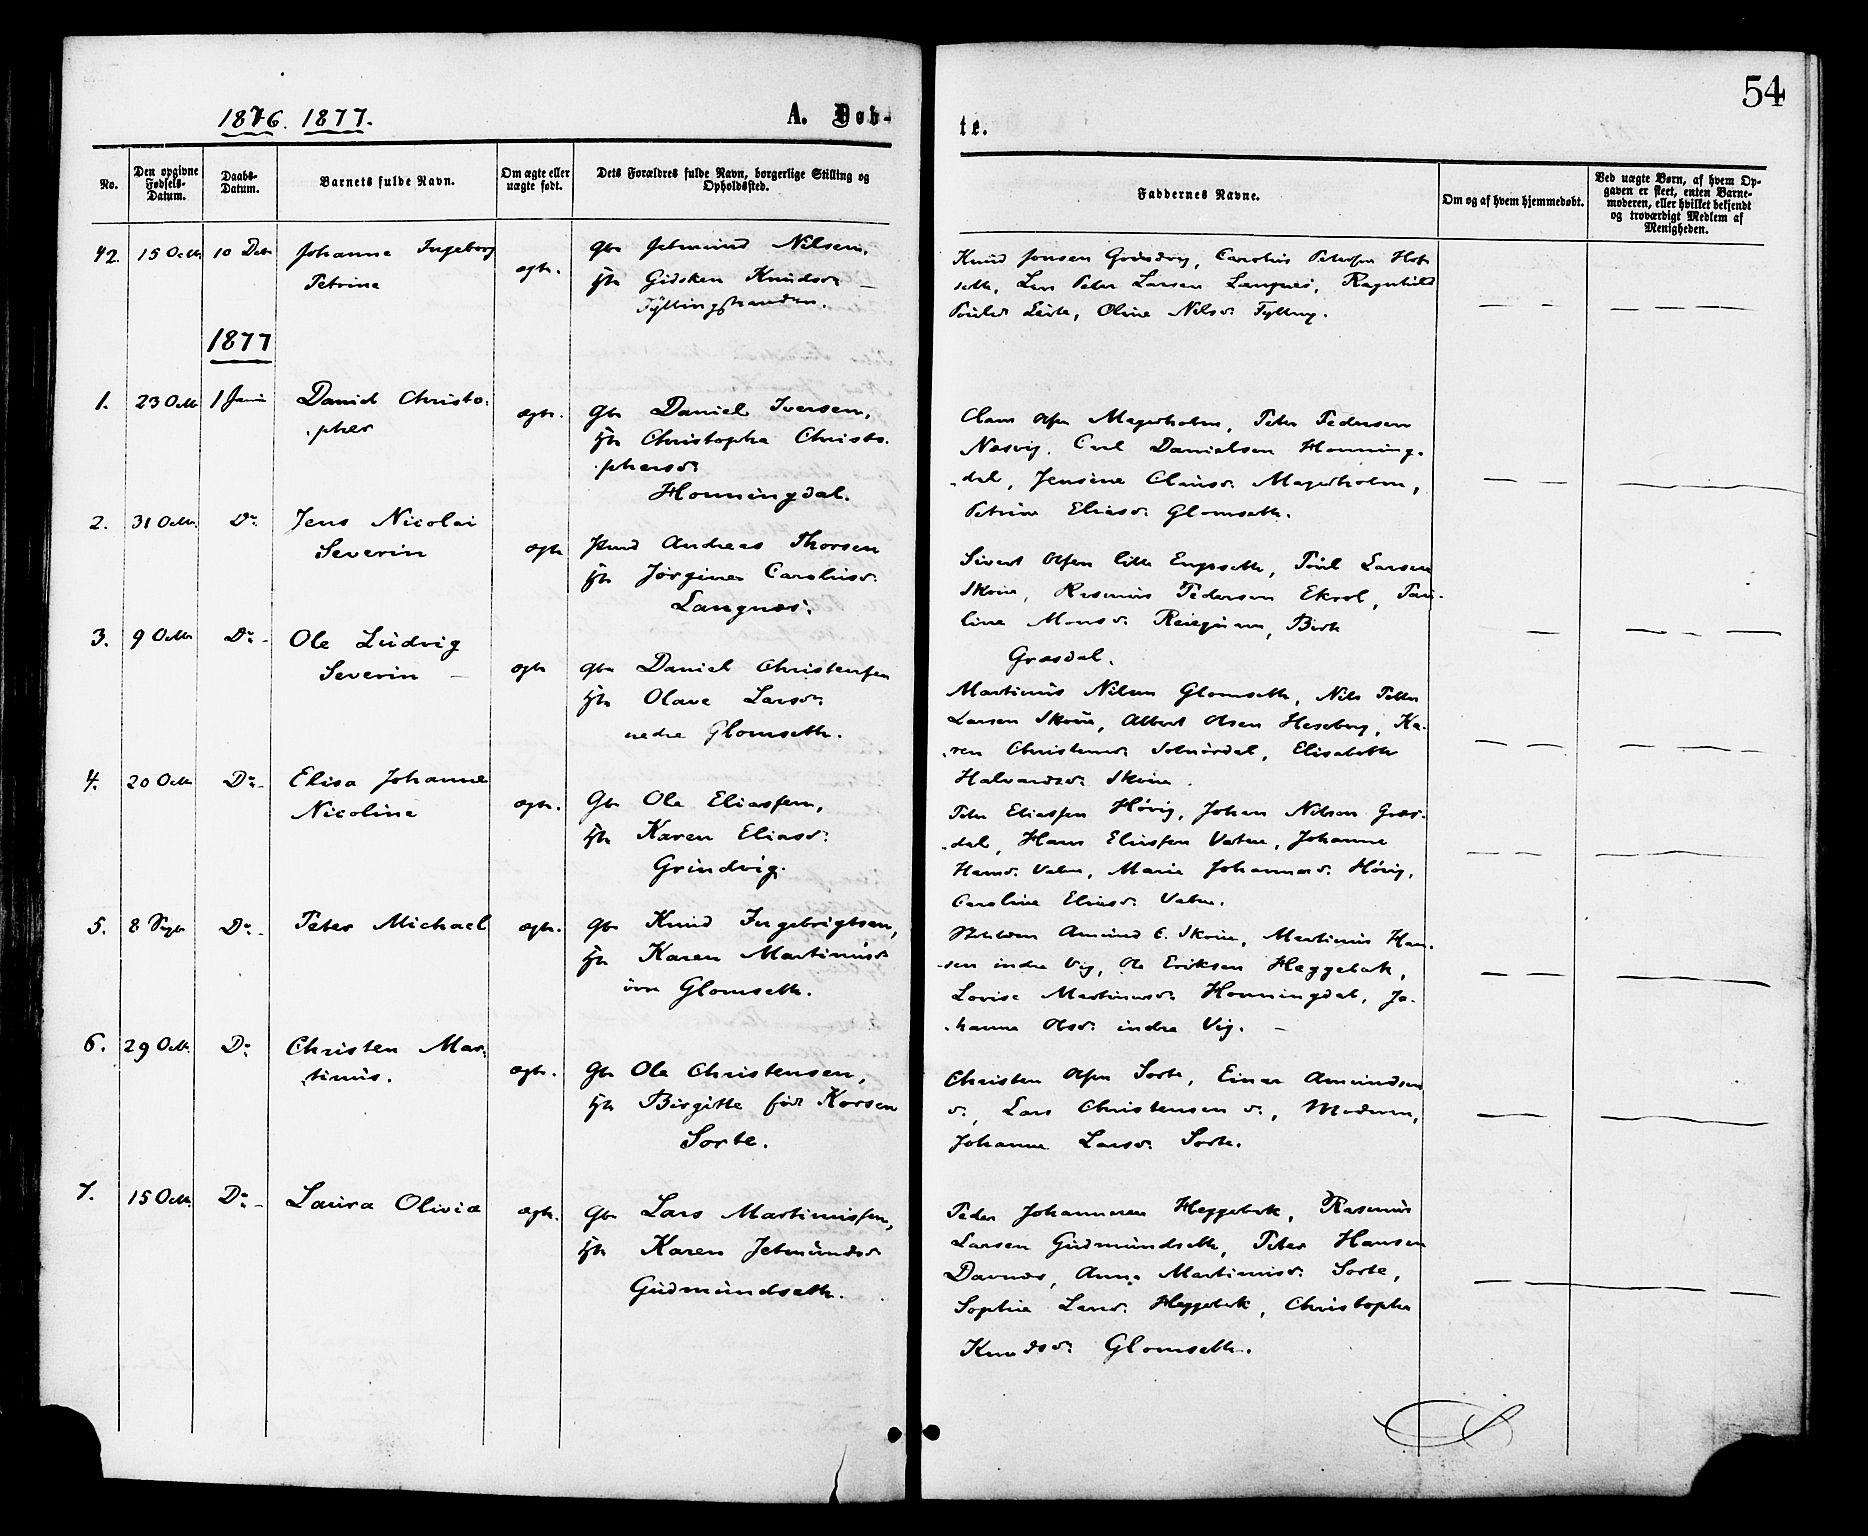 54
1876. 1877.
A. Døb-
te.
No.
Den opgivne Fødsels-Datum.
Daabs-Datum.
Barnets fulde Navn.
Om ægte eller uægte født.
Dets Forældres fulde Navn, borgerlige Stilling og Opholdssted.
Faddernes Navne.
Om og af hvem hjemmedøbt.
Ved uægte Børn, af hvem Op-
gaven er skeet, enten Barne-
moderen, eller hvilket bekjendt
og troværdigt Medlem af
Menigheden.
42. 15 Octb 10 Decbr Johanne Ingeborg
Petrine
ægte.
Gbr Jetmund Nilsen,
Hst Gidsken Knudsdr
Fyllingstranden.
Knud Jonsen, Carolus Petersen Hof-
seth, Lars Peter Larsen Langnes, Ragnhild
Oline Nilsdr Fylling.
1877
1. 23 Octb 1 Janr Daniel Christo-
pher
ægte.
Gbr Daniel Iversen,
Hst Christopha Christo-
phersdr
Honningdal.
Claus Olsen Magerholm, Peter Pedersen
Næsvig, Carl Danielsen Honning-
dal, Jensine Clausdr Magerholm,
Petrine Eliasdr Glomseth.
2. 31 Octbr. Do Jens Nicolai
Severin
ægte
Andreas Thorsen
Hst Jørgine Carolusdr
Langnæs.
Sivert Olsen lille Engeseth, Poul Larsen
Skoue, Rasmus Pedersen Ekrol, Pau-
line Monsdr, Birte
Græsdal.
3. 9 Octbr Do Ole Ludvig
Severin
ægte
Gbr Daniel Christensen
Hst Olave Larsdr
nedre Glomseth.
Martinus Nilsen Glomseth, Nils Petter
Larsen Skoue, Albert Olsen Heseberg, Ka-
ren Christensdr Solnørdal, Elisabeth
Halvardsdr Skoue.
4. 20 Octbr Do Elisa Johanne
Nicoline
ægte.
Gbr Ole Eliassen,
Hst Karen Eliasdr
Grindvig.
Peter Eliassen Høvig, Johan Nilsen Græs-
dal, Hans Eliassen Vatne, Johanne
Hansdr Vatne, Marie Johannesdr Høvig,
Caroline Eliasdr Vatne.
5. 8 Septr Do Peter Michael
ægte.
Gbr Knud Ingebrigtsen,
Hst Karen Martinusdr
øvre Glomseth.
Amund C. Skoue, Martinus Han-
sen indre Vig, Ole Eriksen Hæggebak,
Lovise Martinusdr Honningdal, Jo-
hanne Olsdr indre Vig.
6. 29 Octbr. Do Christen Mar-
tinus.
ægte.
Gbr Ole Christensen,
Hst Birgitte født Korsen
Sorte.
Christen Olsen Sorte, Einar Amundsen
do, Lars Christensen do, Moderen,
Johanne Larsdr Sorte.
7. 15 Octbr. Do Laura Olivia
ægte.
Gbr Lars Martinussen,
Hst Karen Jetmundsdr
Gudmundseth.
Peder Johannesen Heggebak, Rasmus
Larsen Gudmundseth, Peter Hansen
Davnes, Anne Martinusdr Sorte,
Sophie Larsdr Heggebak, Christopha
Knudsdr Glomseth.